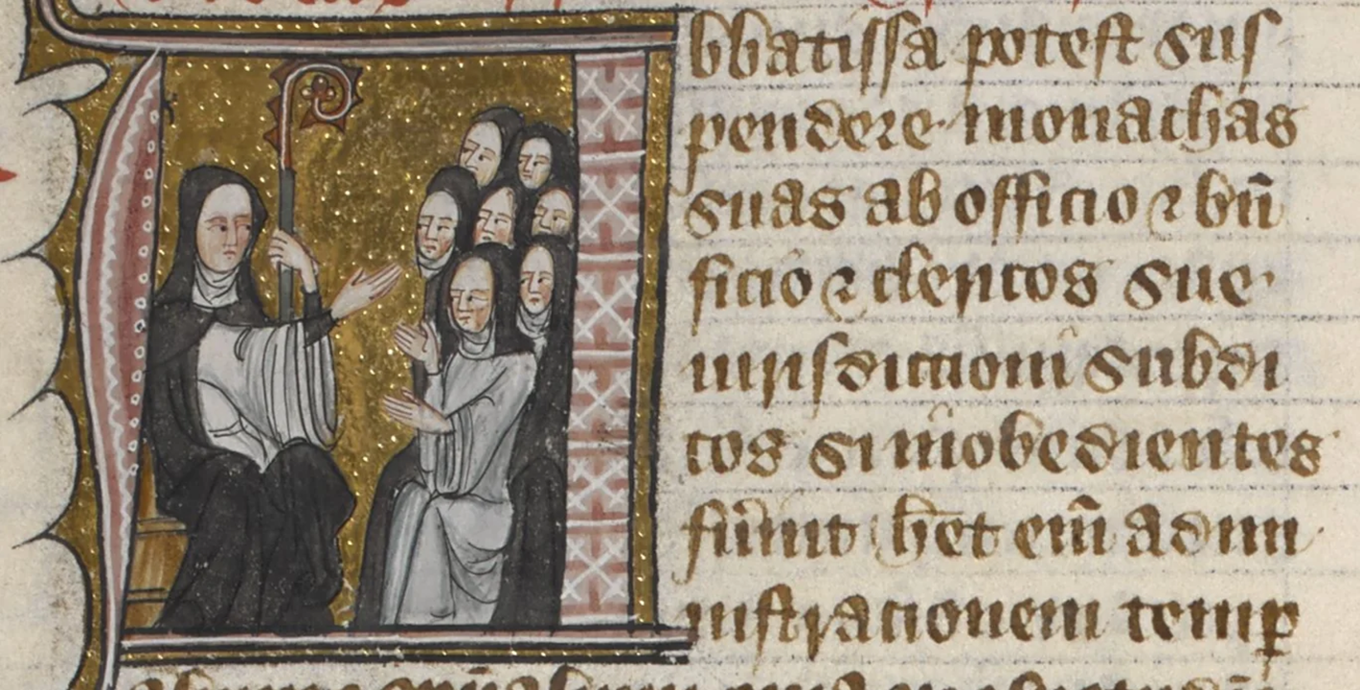 bbatissa potest sus
pendere monachas
suas ab officio ⁊ bn̄
ficio ⁊ clericos sue
iurisdictioni subdi
tos si inobedientes
fu̅int h̅et em̄ admi
nistracionem tempꝑ